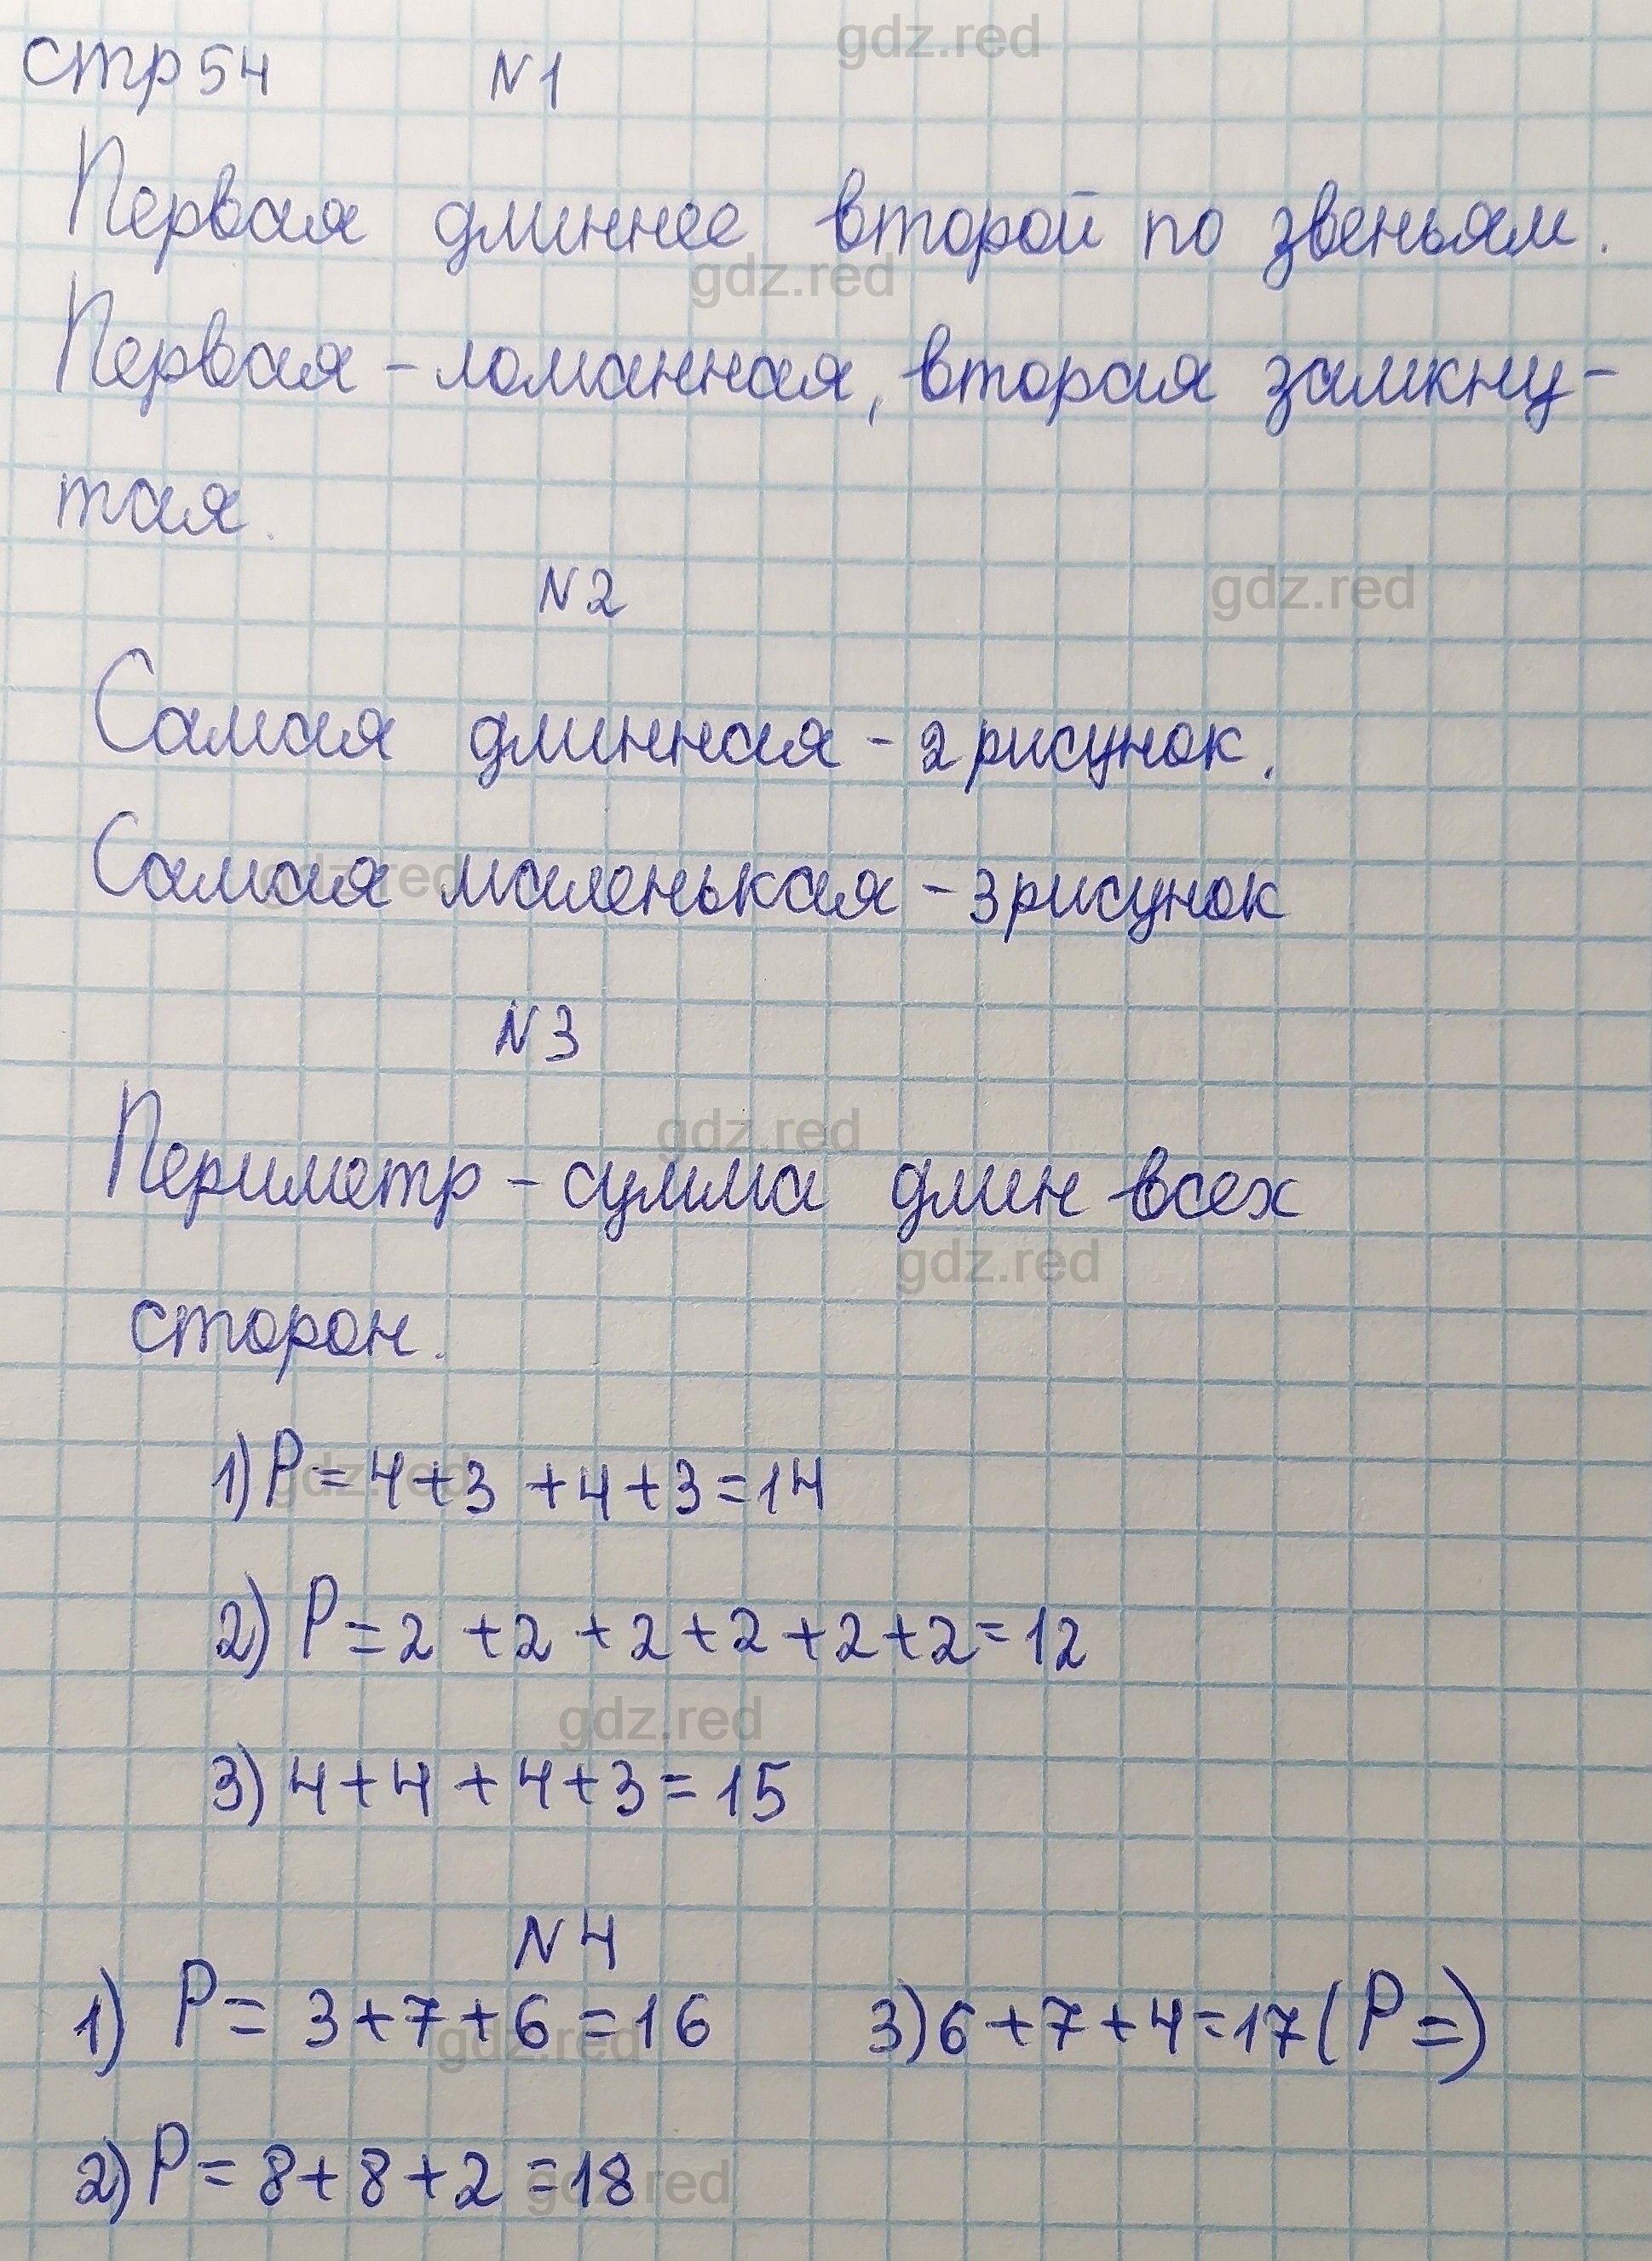 gdz.red
стр 54 N1
Первая длиннее второй по звеньям.
gdz.red
Первая - ломанная, вторая замкну-
тая.
N2
gdz.red
Самая длинная - 2 рисунок.
Самая маленькая - 3 рисунок
gdz.red
N3
gdz.red
Периметр - сумма длин всех
gdz.red
сторон.
1) P = 4 + 3 + 4 + 3 = 14
gdz.red
2) P = 2 + 2 + 2 + 2 + 2 + 2 = 12
gdz.red
3) 4 + 4 + 4 + 3 = 15
N4
1) P = 3 + 7 + 6 = 16 3) 6 + 7 + 4 = 17 (P =)
gdz.red
2) P = 8 + 8 + 2 = 18
gdz.red